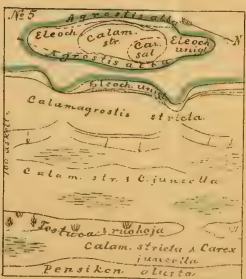 No 5
Agrostis alba
N
Eleoch. Calam. str. Car. sal Eleoch unigl.
Agrostis alba
Eleoch. unigl.
Calamagrostis stricta
100 askelta
Calam. str. & C. juncella
Festuca s ruohoja
Calam. stricta & Carex
juncella
Pensikön alusta